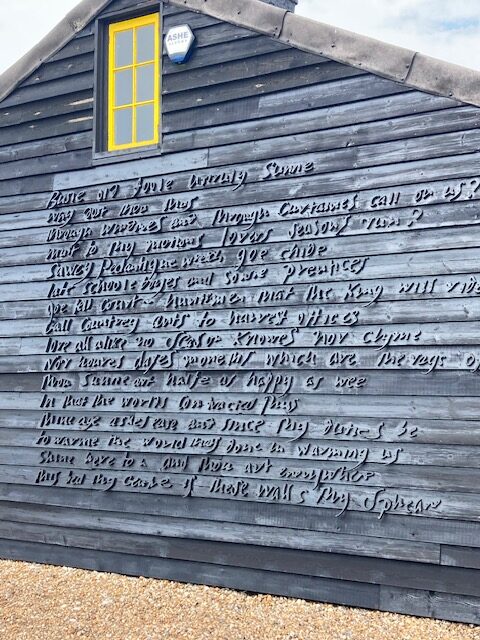 ASHE
ALARMS
Busie old foole unruly Sunne
why dost thou thus
through windows and through Curtaines call on us?
must to thy motions lovers seasons run?
Sawcy Pedantique wretch goe chide
late schoole boyes and sowre prentices
goe tell court-huntsmen that the King will ride
Call Countrey ants to harvest offices
love all alike no season knowes nor clyme
Nor houres dayes moneths which are the rags of
thou Sunne art halfe as happy as wee
In that the worlds contracted thus
thine age askes ease and since thy duties be
to warme the world thats done in warming us
Shine here to us and thou art everywhere
this bed thy Centre is these walls thy sphear